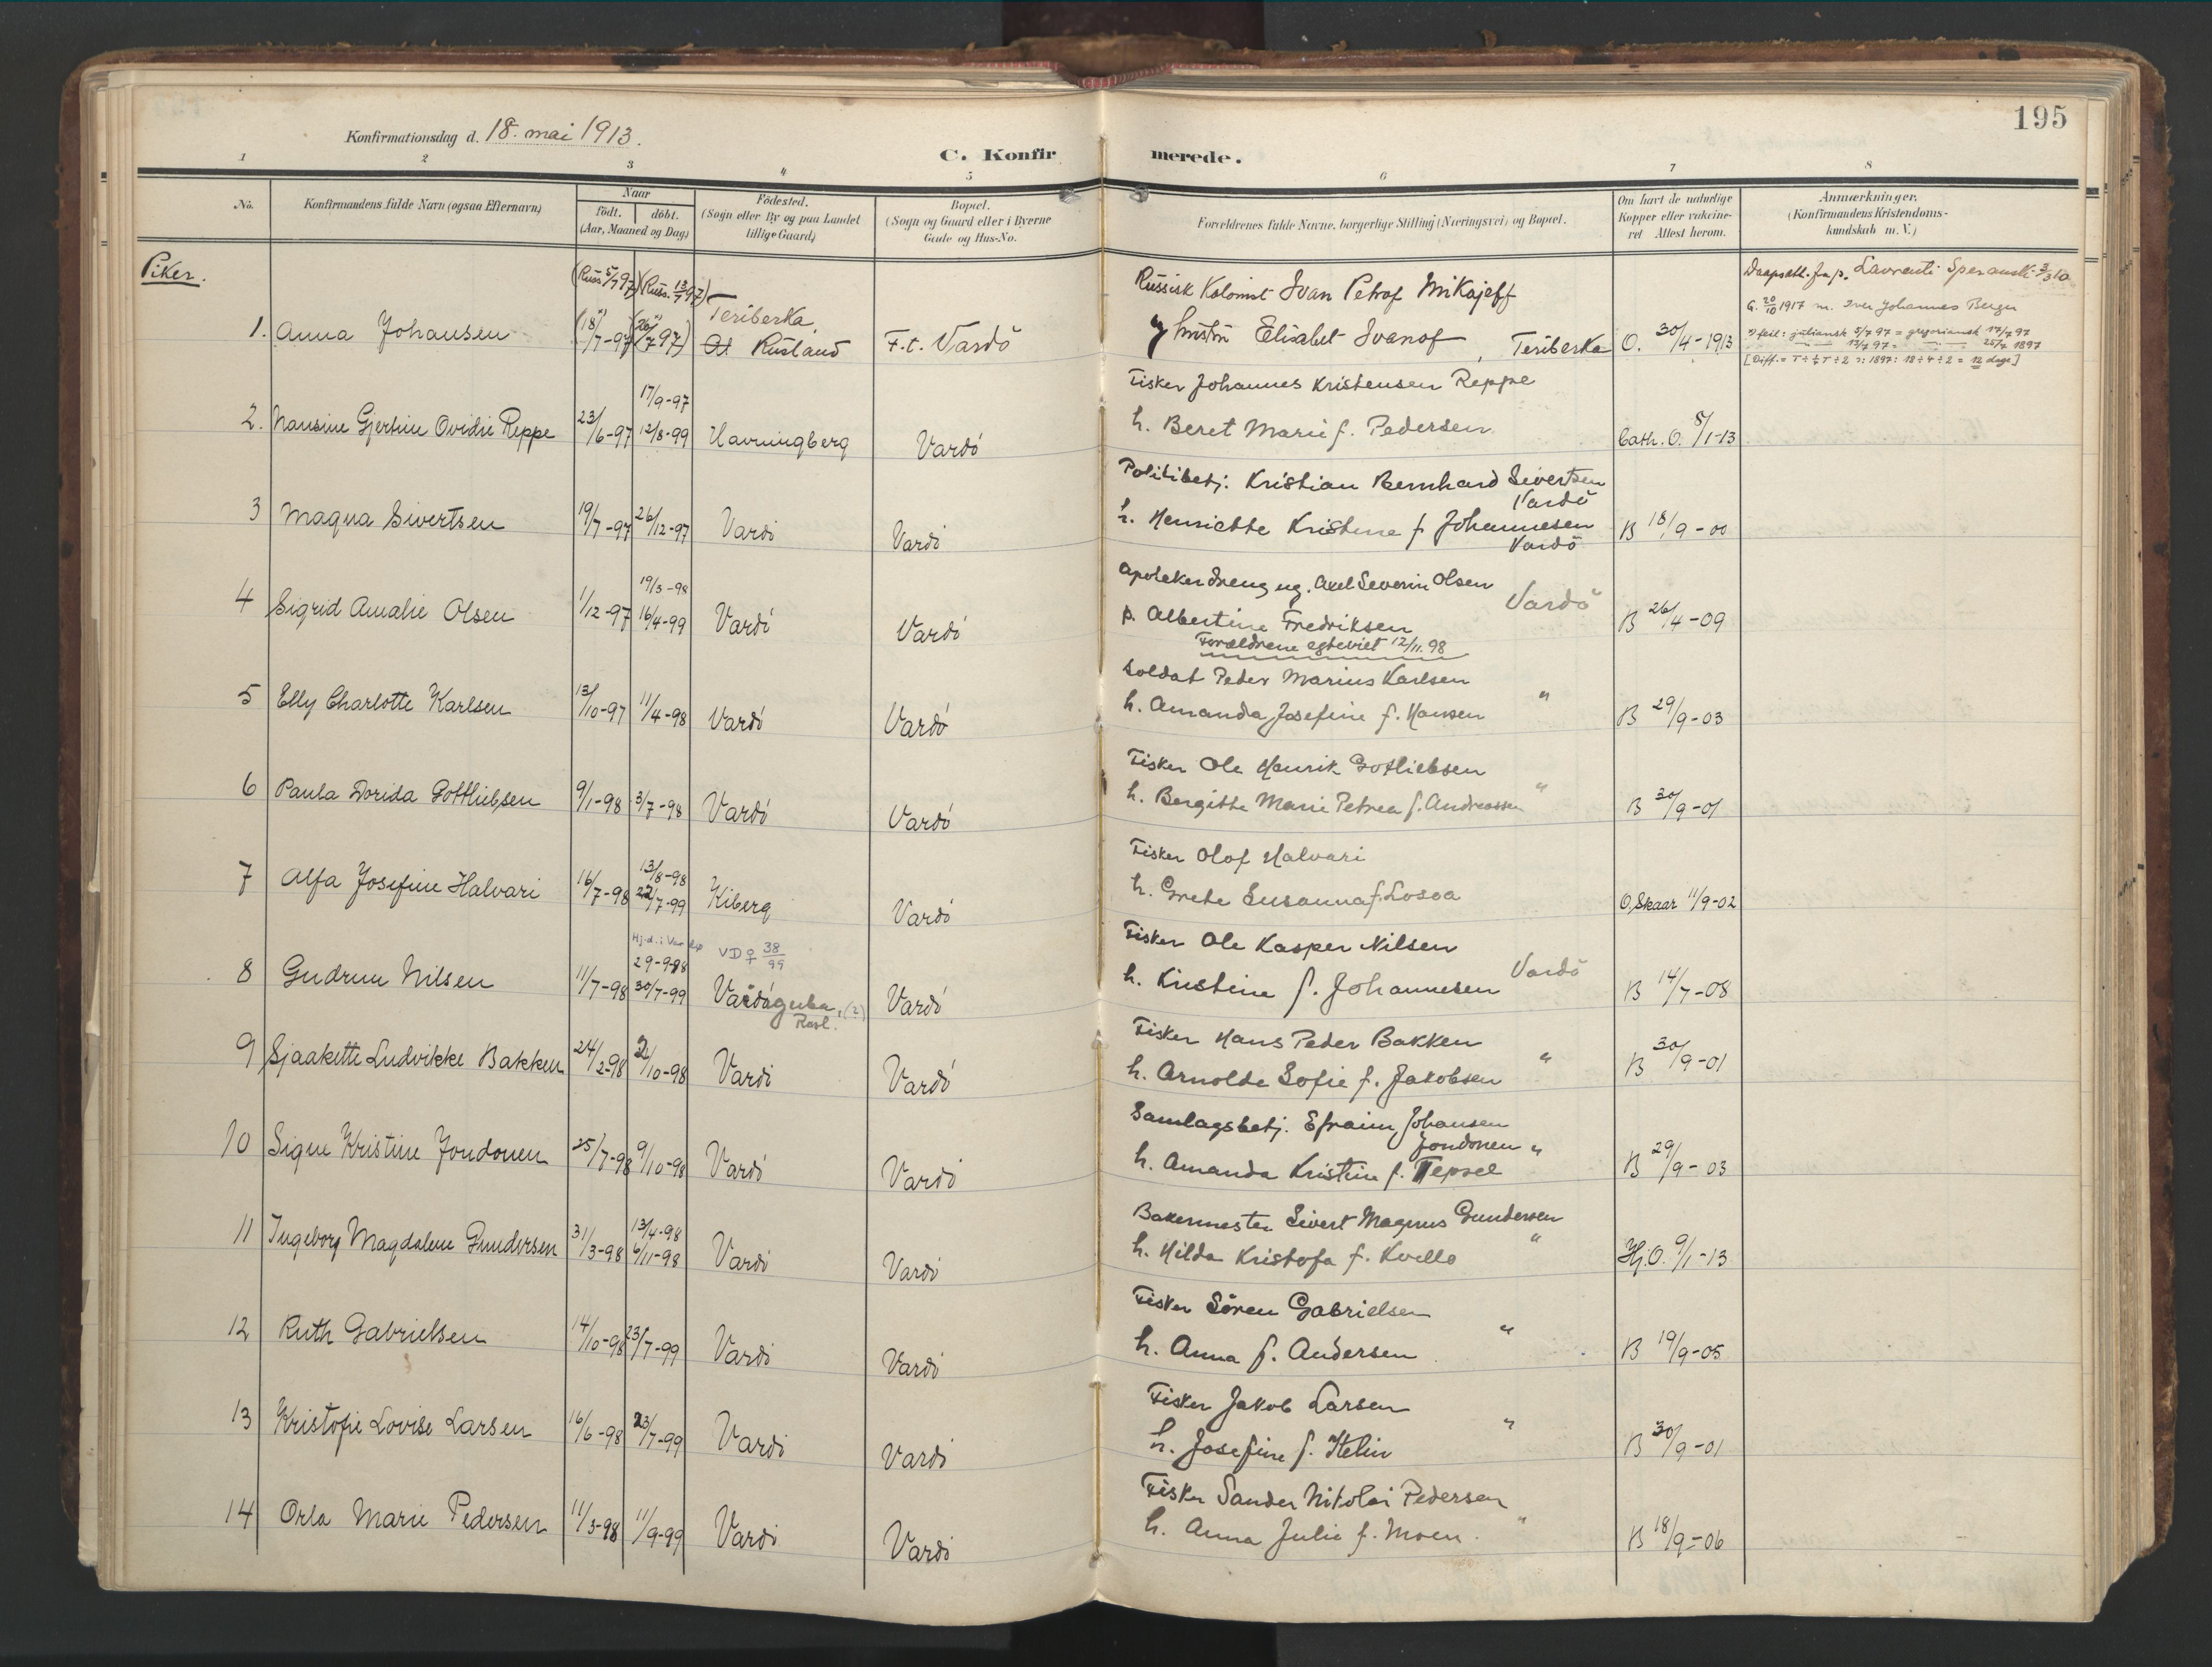 195
Konfirmationsdag d. 18. mai 1913.
C. Konfirmerede.
1 2 3 4 5 6 7 8
No.
Konfirmandens fulde Navn (ogsaa Efternavn)
Naar
födt. döbt.
(Aar, Maaned og Dag)
Födested.
(Sogn eller By og paa Landet
tillige Gaard)
Bopæl.
(Sogn og Gaard eller i Byerne
Gade og Hus-No.
Forældrenes fulde Navne, borgerlige Stilling (Næringsvei) og Bopæl.
Om havt de naturlige
Kopper eller vakcine-
ret Attest herom.
Anmærkninger.
(Konfirmandens Kristendoms-
kundskab m. V.)
Piker.
(Russ. 5/7 97) (Russ. 13/7 97)
1. Anna Johansen (18/7-97) (26/7 97) Teriberka, Rusland F.t. Vardö
Russisk Kolonist Ivan Petrof Mikajeff
og hustru Elisabet Ivanof, Teriberka O. 30/4-1913
Daapsatt. fra p. Lavrenti Speranski 3/3 10
G. 20/10 1917 m. Iver Johannes Berger
*) feil: juliansk 5/7 97 = gregoriansk 17/7 97
13/7 97 = 25/7 1897
= 12 dage]
17/9-97
2. Nansine Gjertine Ovidie Reppe 23/6-97 12/8-99 Havningberg Vardö
Fisker Johannes Kristensen Reppe
h. Beret Marie f. Pedersen Cath. O. 8/1-13
3 Magna Sivertsen 19/7-97 26/12-97 Vardö Vardö
Politibetj. Kristian Bernhard Sivertsen
Vardö
h. Henriette Kristine f. Johannesen B 18/9-00
Vardö
19/3-98
4 Sigrid Amalie Olsen 1/12-97 16/4-99 Vardö Vardö
Apotekerdreng ug. Axel Severin Olsen
Vardö
p. Albertine Fredriksen B 26/4-09
Forældrene egteviet 12/11.98
5 Elly Charlotte Karlsen 13/10-97 11/4-98 Vardö Vardö
Soldat Peder Marius Karlsen "
h. Amanda Josefine f. Hansen B 29/9-03
6 Paula Dorida Gottliebsen 9/1-98 3/7-98 Vardö Vardö
Fisker Ole Henrik Gottliebsen
h. Bergitte Marie Petrea f. Andreassen " B 30/9-01
13/8-98
7 Alfa Josefine Halvari 16/7-98 22/7-99 Kiberg Vardö
Fisker Olof Halvari
h. Grete Susanna f. Losoa O, Skaar 11/9-02
VD♀ 38/99
29-9-98
8 Gudrun Nilsen 11/7-98 30/7-99 Vaidaguba, (?) Vardö
Rusl.
Fisker Ole Kasper Nilsen
Vardö
h. Kristine f. Johannesen B 14/7-08
9 Sjaakette Ludvikke Bakken 24/2-98 2/10-98 Vardö Vardö
Fisker Hans Peder Bakken "
h. Arnolde Sofie f. Jakobsen B 30/9-01
10 Signe Kristine Jondonen 25/7-98 9/10-98 Vardö Vardö
Samlagsbetj. Efraim Johansen
Jondonen "
h. Amanda Kristine f. Tepsel B 29/9-03
13/4-98
11 Ingeborg Magdalene Gundersen 31/3-98 6/11-98 Vardö Vardö
Bakermester Sivert Magnus Gundersen
"
h. Hilda Kristofa f. Kvello Hj. O. 9/1-13
12 Ruth Gabrielsen 14/10-98 23/7-99 Vardö Vardö
Fisker Sören Gabrielsen
"
h. Anna f. Andersen B 19/9-05
13 Kristofie Lovise Larsen 16/6-98 23/7-99 Vardö Vardö
Fisker Jakob Larsen
"
h. Josefine f. Helin B 30/9-01
14 Orla Marie Pedersen 11/3-98 11/9-99 Vardö Vardö
Fisker Sander Nikolai Pedersen
"
h. Anna Julie f. Moen. B 18/9-06